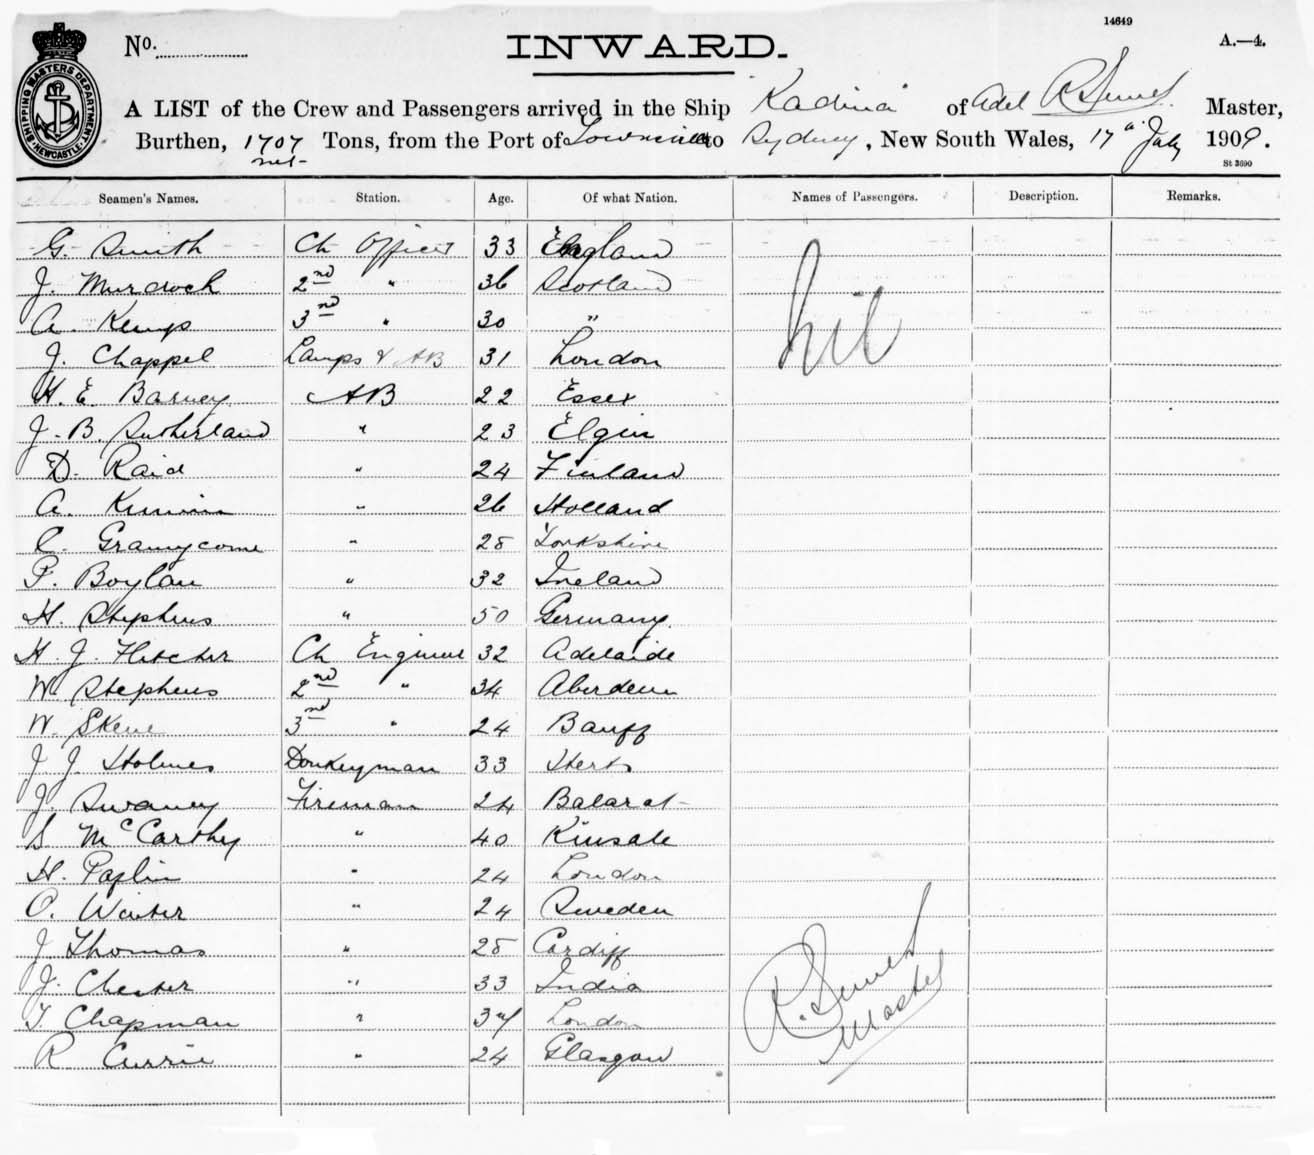 14649
No.
INWARD.
A.—4.
SHIPPING MASTERS DEPARTMENT NEWCASTLE
A LIST of the Crew and Passengers arrived in the Ship "Kadina" of Adel Master,
Burthen, 1707 Tons, from the Port of Townsville to Sydney, New South Wales, 17th July 1909.
net
St 3690
Seamen's Names. Station. Age. Of what Nation. Names of Passengers. Description. Remarks.
G. Smith Ch Officer 33 England
J. Murdoch 2nd " 36 Scotland
A. Kemp 3rd " 30 "
nil
J. Chappel Lamps & AB 31 London
H. E. Barney AB 22 Essex
J. B. Sutherland " 23 Elgin
D. Raid " 24 Finland
A. " 26 Holland
C. " 28 Yorkshire
P. Boylan " 32 Ireland
H. Stephens " 50 Germany
H. J. Fletcher Ch Engineer 32 Adelaide
W. Stephens 2nd " 34 Aberdeen
W. Skene 3rd " 24 Banff
J. J. Holmes Donkeyman 33 Herts
J. Swaney Fireman 24 Balarat
S McCarthy " 40 Kinsale
H. Paplin " 24 London
O. Winter " 24 Sweden
J Thomas " 28 Cardiff
J. Chester " 33 India
T. Chapman " 34 London
R Currie " 24 Glasgow
Master